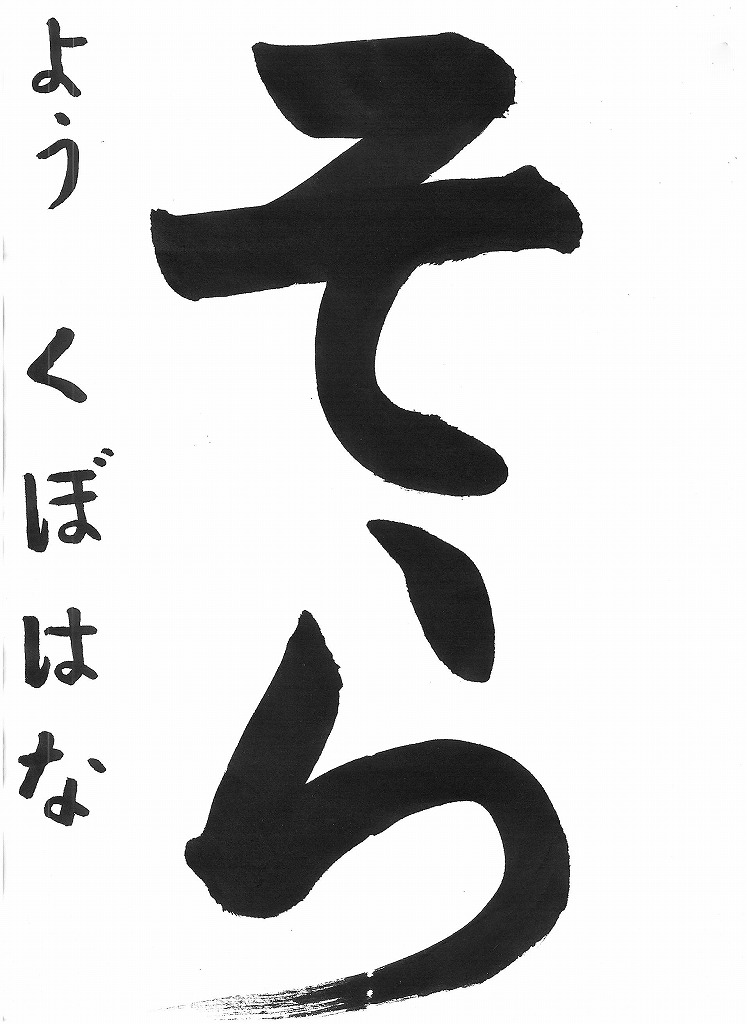 そら
よう くぼはな